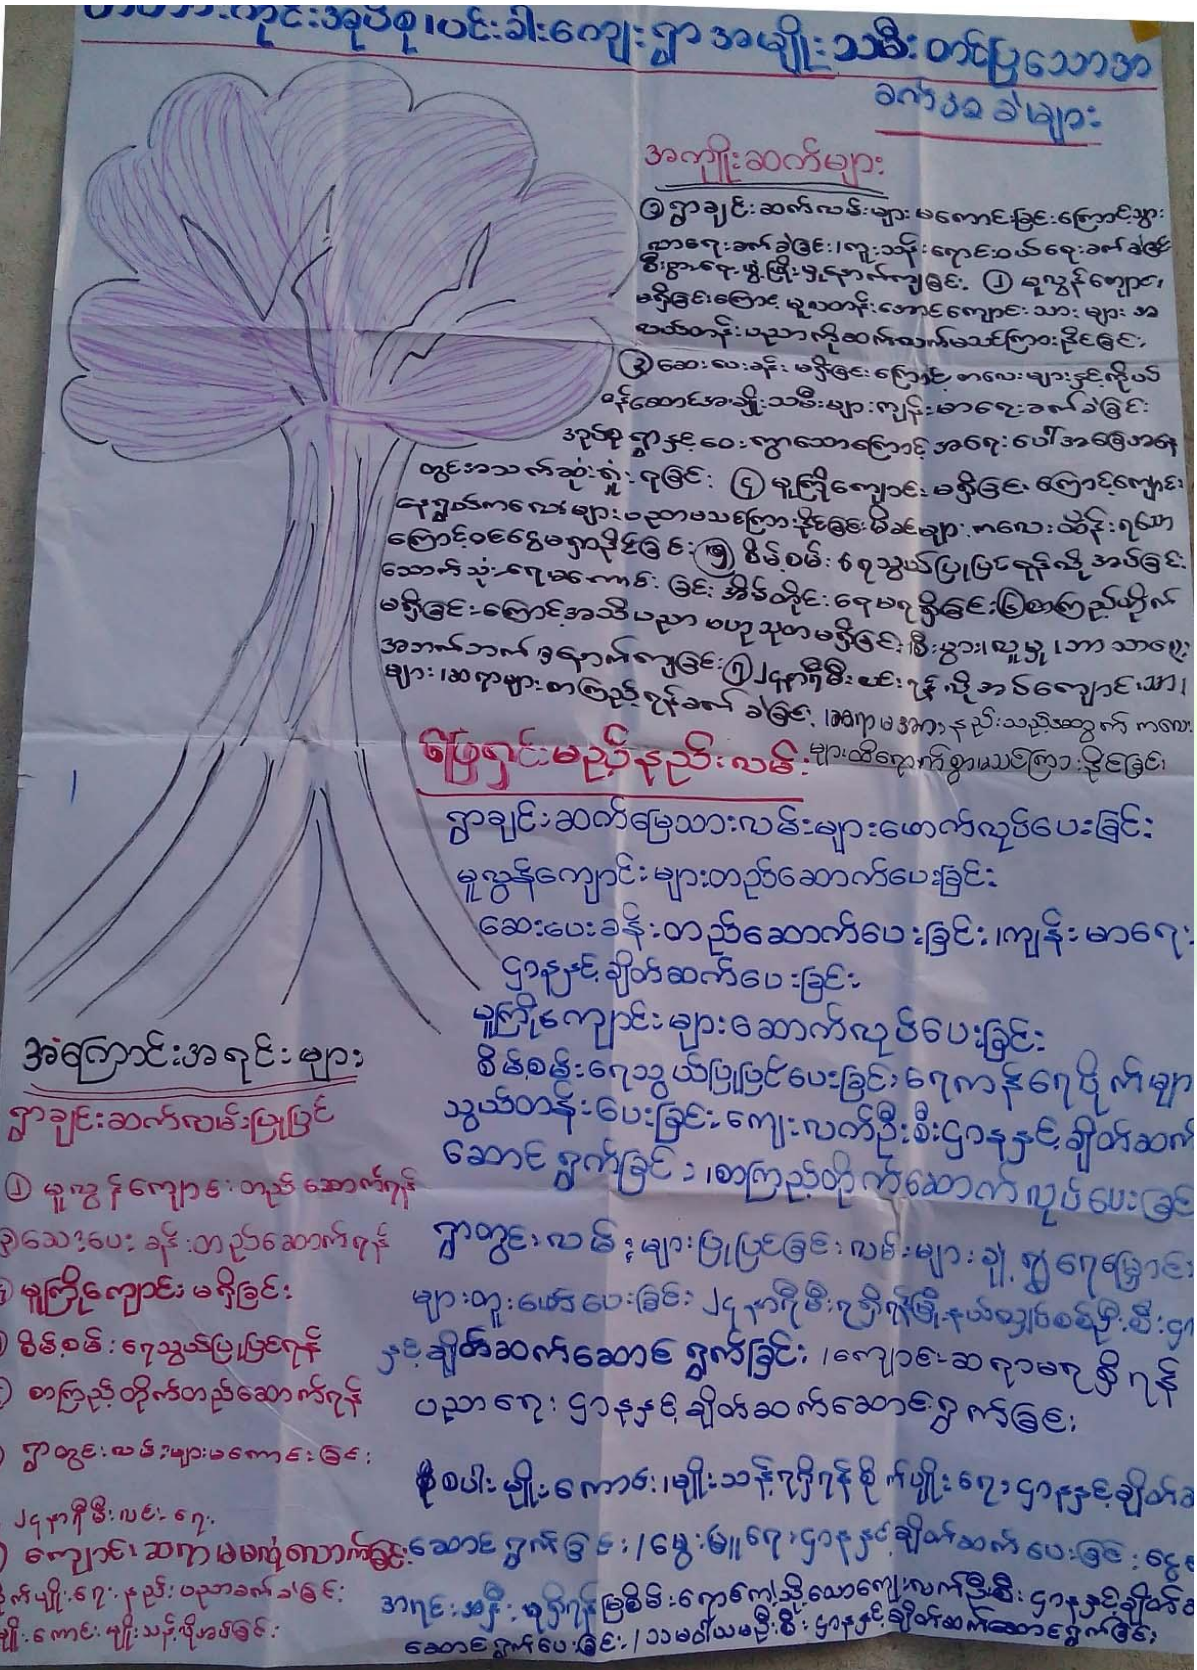 အုပ်စု၊ပင်းခါးကျေးရွာအမျိုးသမီးတင်ပြသောအ
ခက်အခဲများ
အကျိုးဆက်များ
၁ ရွာချင်းဆက်လမ်းများမကောင်းခြင်းကြောင့်သွား
လာရေးခက်ခဲခြင်း၊ကူးသန်းရောင်းဝယ်ရေးခက်ခဲခြင်း
စီးပွားရေးဖွံ့ဖြိုးမှုနောက်ကျခြင်း ၂ မူလွန်ကျောင်း
မရှိခြင်းကြောင့် မူလတန်းအောင်ကျောင်းသားများ အ
လယ်တန်းပညာကိုဆက်လက်မသင်ကြားနိုင်ခြင်း
၃ ဆေးပေးခန်း မရှိခြင်းကြောင့် ကလေးများနှင့်ကိုယ်
ဝန်ဆောင်အမျိုးသမီးများကျန်းမာရေးခက်ခဲခြင်း
အုပ်စုရွာနှင့်ဝေးကွာသောကြောင့် အရေးပေါ်အခြေအနေ
တွင်အသက်ဆုံးရှုံးရခြင်း ၄ မူကြိုကျောင်း မရှိခြင်းကြောင့်ကျောင်း
နေရွယ်ကလေးများပညာမသင်ကြားနိုင်ခြင်းမိခင်များကလေးထိန်းရသော
ကြောင့်ဝင်ငွေမရှာနိုင်ခြင်း ၅ စိမ့်စမ်းရေသွယ်ပြုပြင်ရန်လိုအပ်ခြင်း
သောက်သုံးရေမကောင်းခြင်း အိမ်တိုင်းရေမရရှိခြင်း ၆ စာကြည့်တိုက်
မရှိခြင်းကြောင့်အသိပညာ ဗဟုသုတမရှိခြင်း၊စီးပွား၊လူမှု၊ဘာသာရေး
အဘက်ဘက်နောက်ကျခြင်း ၇ ၂၄နာရီမီးလင်းရန်လိုအပ်ကျောင်းသား
များ၊ဆရာများစာကြည့်ရန်ခက်ခဲခြင်း၊ဆရာမအားနည်းသည့်အတွက် ကလေး
ဖြေရှင်းမည့်နည်းလမ်း များထိရောက်စွာမသင်ကြားနိုင်ခြင်း
ရွာချင်းဆက်မြေသားလမ်းများဖောက်လုပ်ပေးခြင်း
မူလွန်ကျောင်းများတည်ဆောက်ပေးခြင်း
ဆေးပေးခန်းတည်ဆောက်ပေးခြင်း၊ကျန်းမာရေး
ဌာနနှင့်ချိတ်ဆက်ပေးခြင်း
မူကြိုကျောင်းများဆောက်လုပ်ပေးခြင်း
စိမ့်စမ်းရေသွယ်ပြုပြင်ပေးခြင်း၊ရေကန်ရေပိုက်များ
သွယ်တန်းပေးခြင်းကျေးလက်ဦးစီးဌာနနှင့်ချိတ်ဆက်
ဆောင်ရွက်ခြင်း၊စာကြည့်တိုက်ဆောက်လုပ်ပေးခြင်း
ရွာတွင်းလမ်းများပြုပြင်ခြင်းလမ်းများချဲ့၍ရေမြောင်း
များတူးဖော်ပေးခြင်း ၂၄နာရီမီးရရှိရန်မြို့နယ်လျှပ်စစ်ဦးစီးဌာ
နှင့်ချိတ်ဆက်ဆောင်ရွက်ခြင်း၊ကျောင်းဆရာမရရှိရန်
ပညာရေးဌာနနှင့်ချိတ်ဆက်ဆောင်ရွက်ခြင်း
စပါးမျိုးကောင်း၊မျိုးသန့်ရရှိရန်စိုက်ပျိုးရေးဌာနနှင့်ချိတ်ဆ
ဆောင်ရွက်ခြင်း၊မွေးမြူရေးဌာနနှင့်ချိတ်ဆက်ပေးခြင်း ငွေ
အရင်းအနှီးရရှိရန်မြစိမ်းရောင်ကဲ့သို့သောကျေးလက်ဦးစီးဌာနနှင့်ချိတ်ဆ
ဆောင်ရွက်ပေးခြင်း၊သမဝါယမဦးစီးဌာနနှင့်ချိတ်ဆက်ဆောင်ရွက်ခြင်း
အကြောင်းအရင်းများ
ရွာချင်းဆက်လမ်းပြုပြင်
၂ မူလွန်ကျောင်းတည်ဆောက်ရန်
ဆေးပေးခန်းတည်ဆောက်ရန်
မူကြိုကျောင်းမရှိခြင်း
စိမ့်စမ်းရေသွယ်ပြုပြင်ရန်
စာကြည့်တိုက်တည်ဆောက်ရန်
ရွာတွင်းလမ်းများမကောင်းခြင်း
၂၄နာရီမီးလင်းရေး
ကျောင်းဆရာမမလုံလောက်ခြင်း
စိုက်ပျိုးရေးနည်းပညာခက်ခဲခြင်း
မျိုးကောင်းမျိုးသန့်လိုအပ်ခြင်း